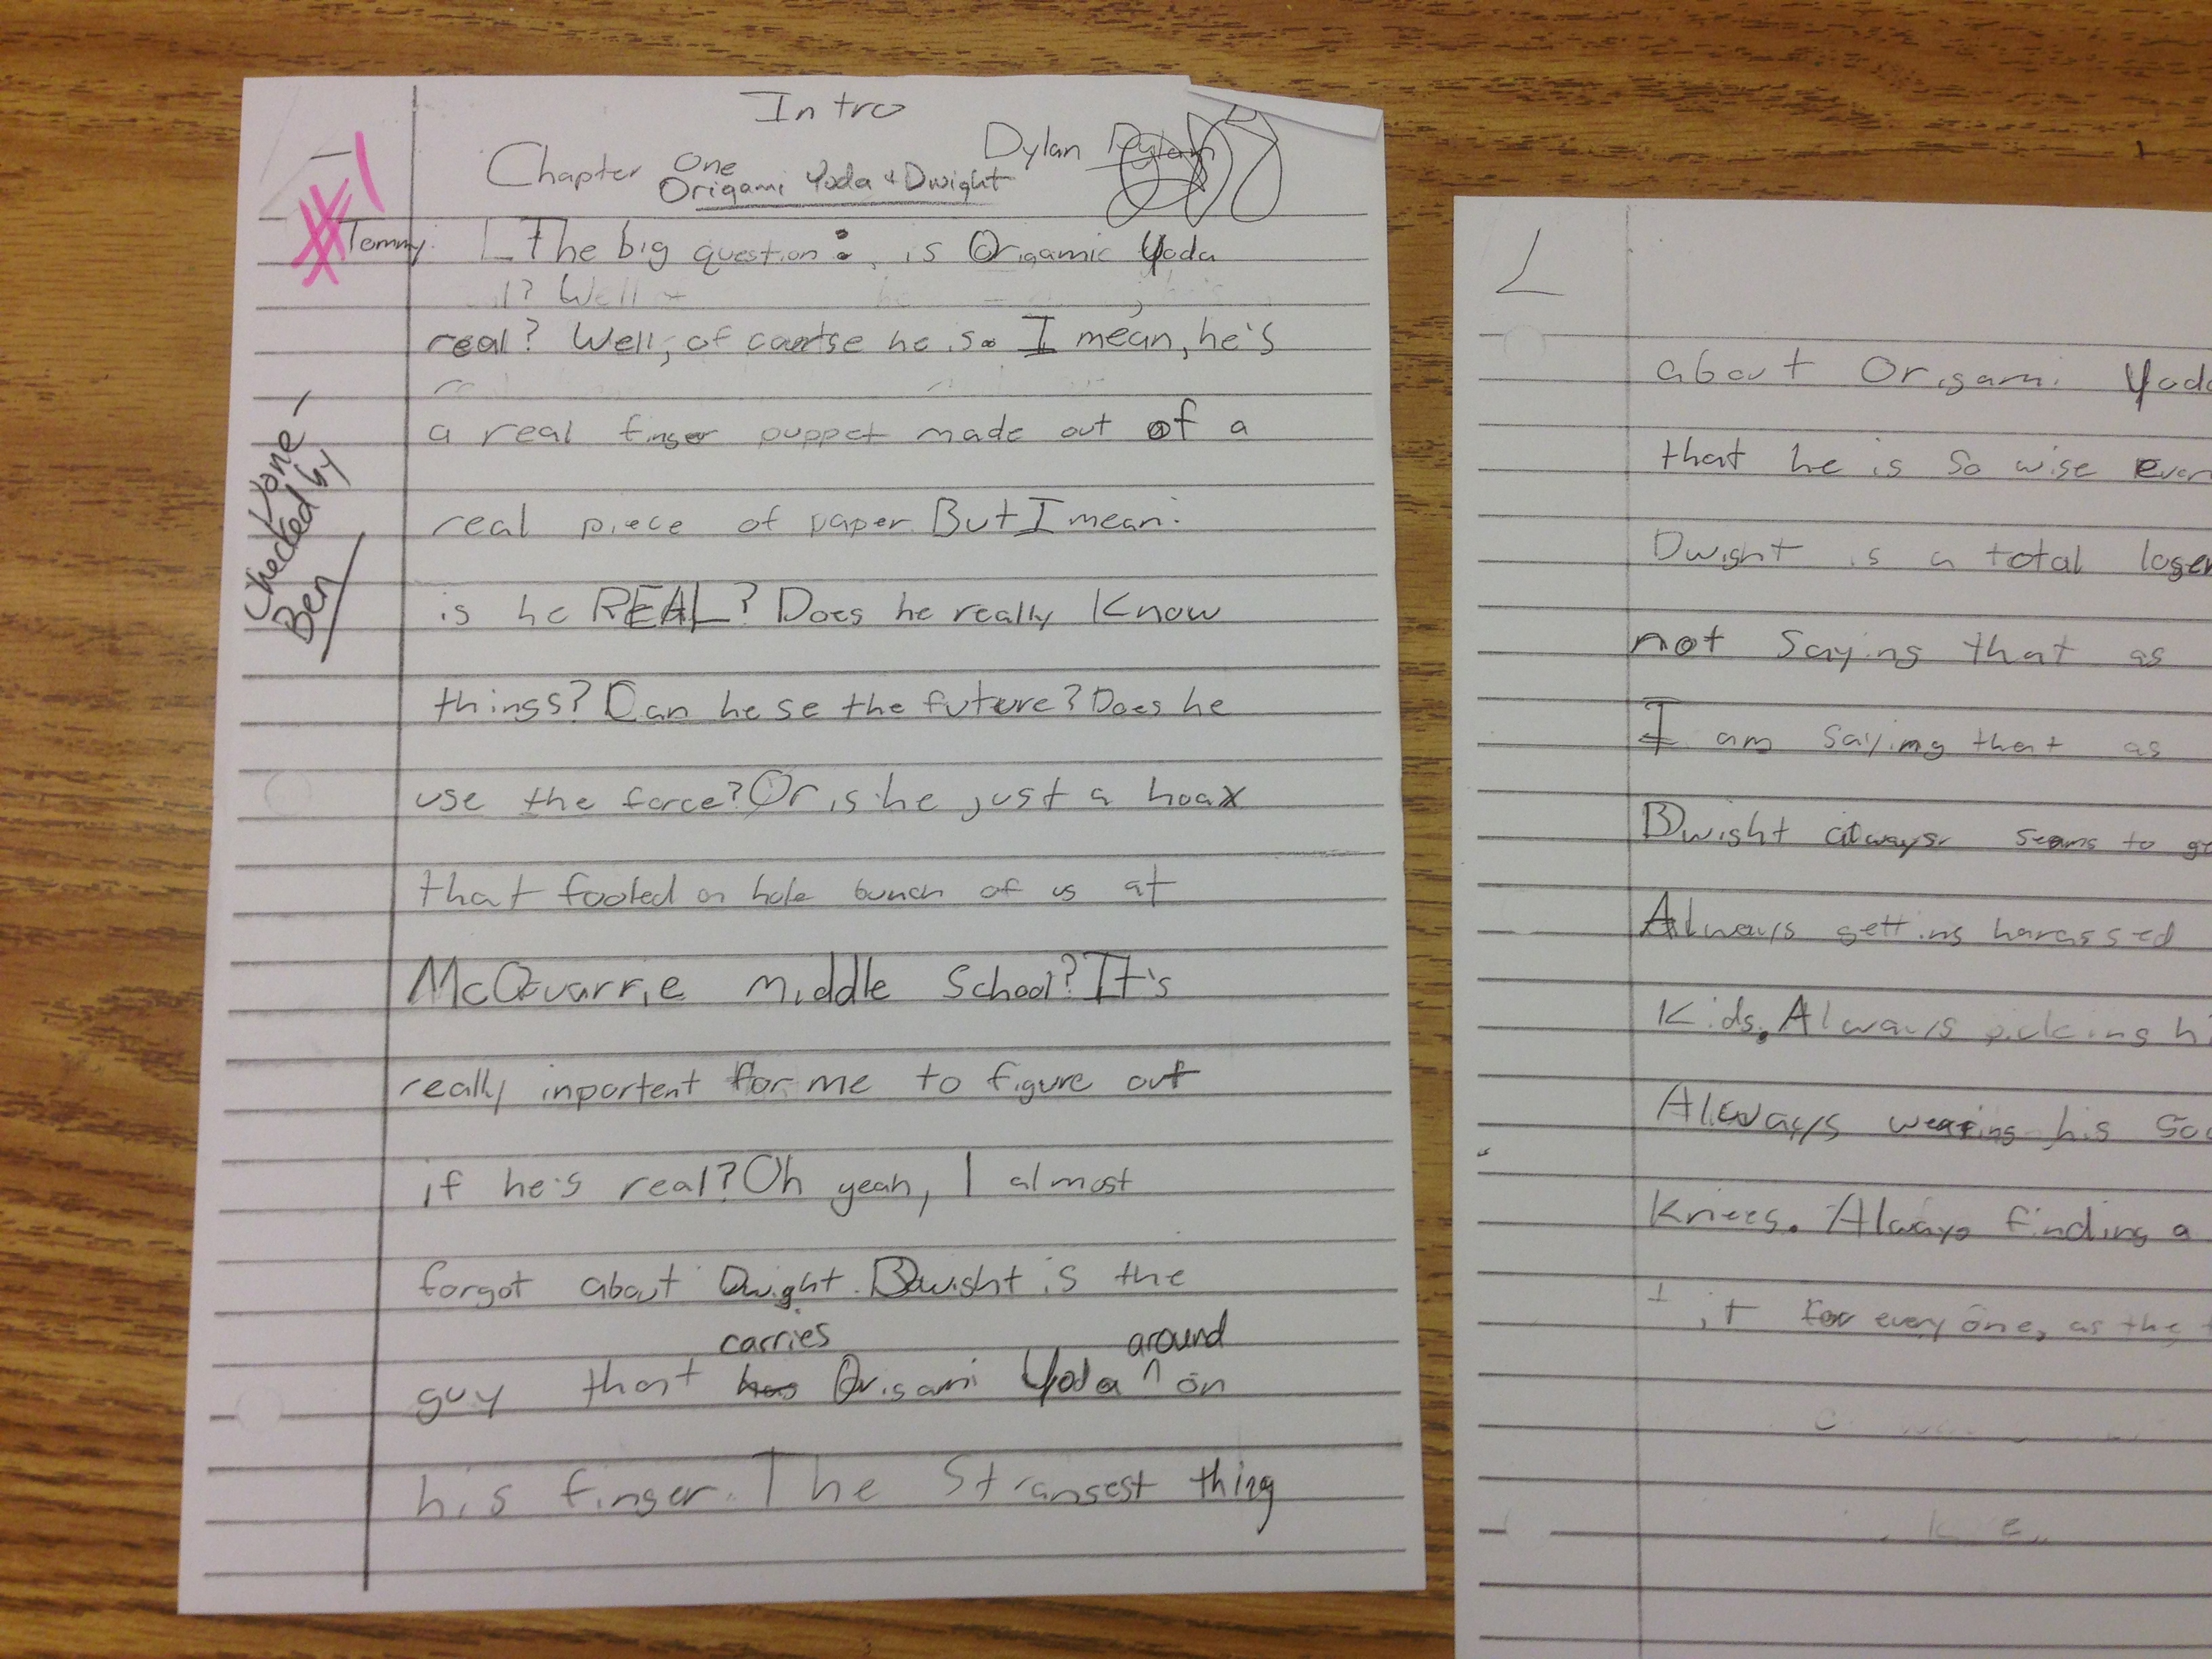 Intro
Dylan
Chapter One
Origami Yoda + Dwight
#1
Tommy: The big question: is Origamic Yoda
real? Well, of course he is. I mean, he's
a real finger puppet made out of a
real piece of paper. But I mean:
is he REAL? Does he really Know
things? Can he se the future? Does he
use the force? Or is he just a hoax
that fooled a hole bunch of us at
McQuarrie middle School? It's
really inportent for me to figure out
if he's real? Oh yeah, I almost
forgot about Dwight. Dwight is the
carries around
guy that has Origami Yoda ^ on
his finger. The Strangest thing
Done -
Checked by
Ben
2
about Origami Yoda
that he is So wise
Dwight is a total loser
not Saying that as
I am Saying that as
Dwight always seems to
Always getting harassed
Kids. Always picking
Always wearing his
Knees. Always finding a
it for everyone, as the